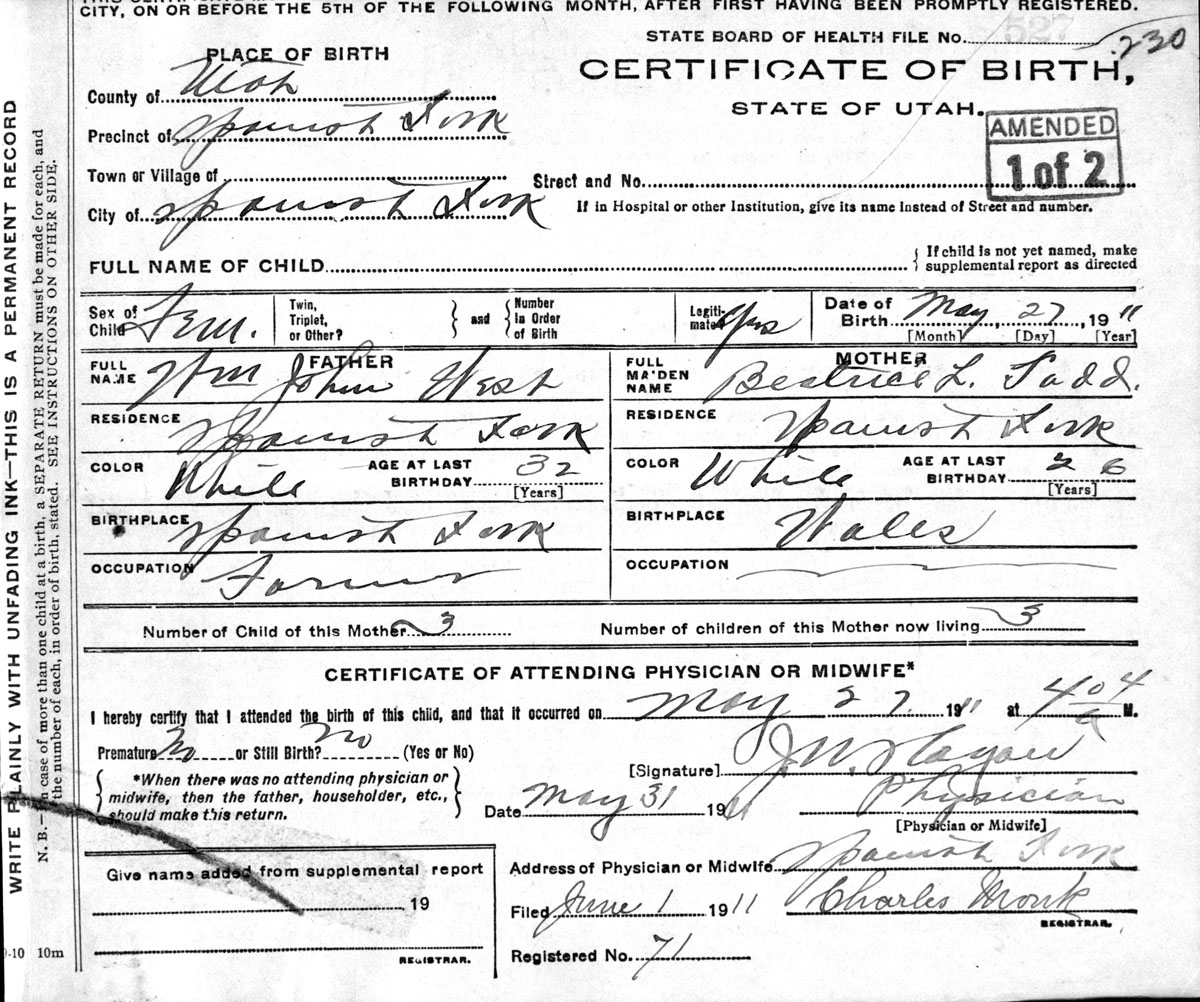 CITY, ON OR BEFORE THE 5TH OF THE FOLLOWING MONTH, AFTER FIRST HAVING BEEN PROMPTLY REGISTERED.
STATE BOARD OF HEALTH FILE NO. 527 230
PLACE OF BIRTH
CERTIFICATE OF BIRTH,
STATE OF UTAH.
AMENDED
1 of 2
County of Utah
Precinct of Spanish Fork
Town or Village of
Street and No.
City of Spanish Fork
If in Hospital or other Institution, give its name instead of Street and number.
FULL NAME OF CHILD
{ If child is not yet named, make
supplemental report as directed
Sex of Child Fem.
Twin, Triplet, or Other?
} and {
Number in Order of Birth
Legiti-mate? Yes
Date of Birth May 27, 1911
[Month] [Day] [Year]
FATHER
FULL NAME Wm John West
RESIDENCE Spanish Fork
COLOR White AGE AT LAST BIRTHDAY 32
[Years]
BIRTHPLACE Spanish Fork
OCCUPATION Farmer
MOTHER
FULL MAIDEN NAME Beatrice L. Tadd.
RESIDENCE Spanish Fork
COLOR White AGE AT LAST BIRTHDAY 26
[Years]
BIRTHPLACE Wales
OCCUPATION
Number of Child of this Mother 3 Number of children of this Mother now living 3
CERTIFICATE OF ATTENDING PHYSICIAN OR MIDWIFE*
I hereby certify that I attended the birth of this child, and that it occurred on May 27. 1911 at 4 04 a M.
Premature No or Still Birth? No (Yes or No)
{ *When there was no attending physician or
midwife, then the father, householder, etc.,
should make this return. }
[Signature] J. W.
Date May 31 1911 Physician
[Physician or Midwife]
Address of Physician or Midwife Spanish Fork
Filed June 1 1911 Charles Monk
REGISTRAR.
Registered No. 71
Give name added from supplemental report
19
REGISTRAR.
WRITE PLAINLY WITH UNFADING INK—THIS IS A PERMANENT RECORD
N. B.—In case of more than one child at a birth, a SEPARATE RETURN must be made for each, and
the number of each, in order of birth, stated. SEE INSTRUCTIONS ON OTHER SIDE.
10-10 10m